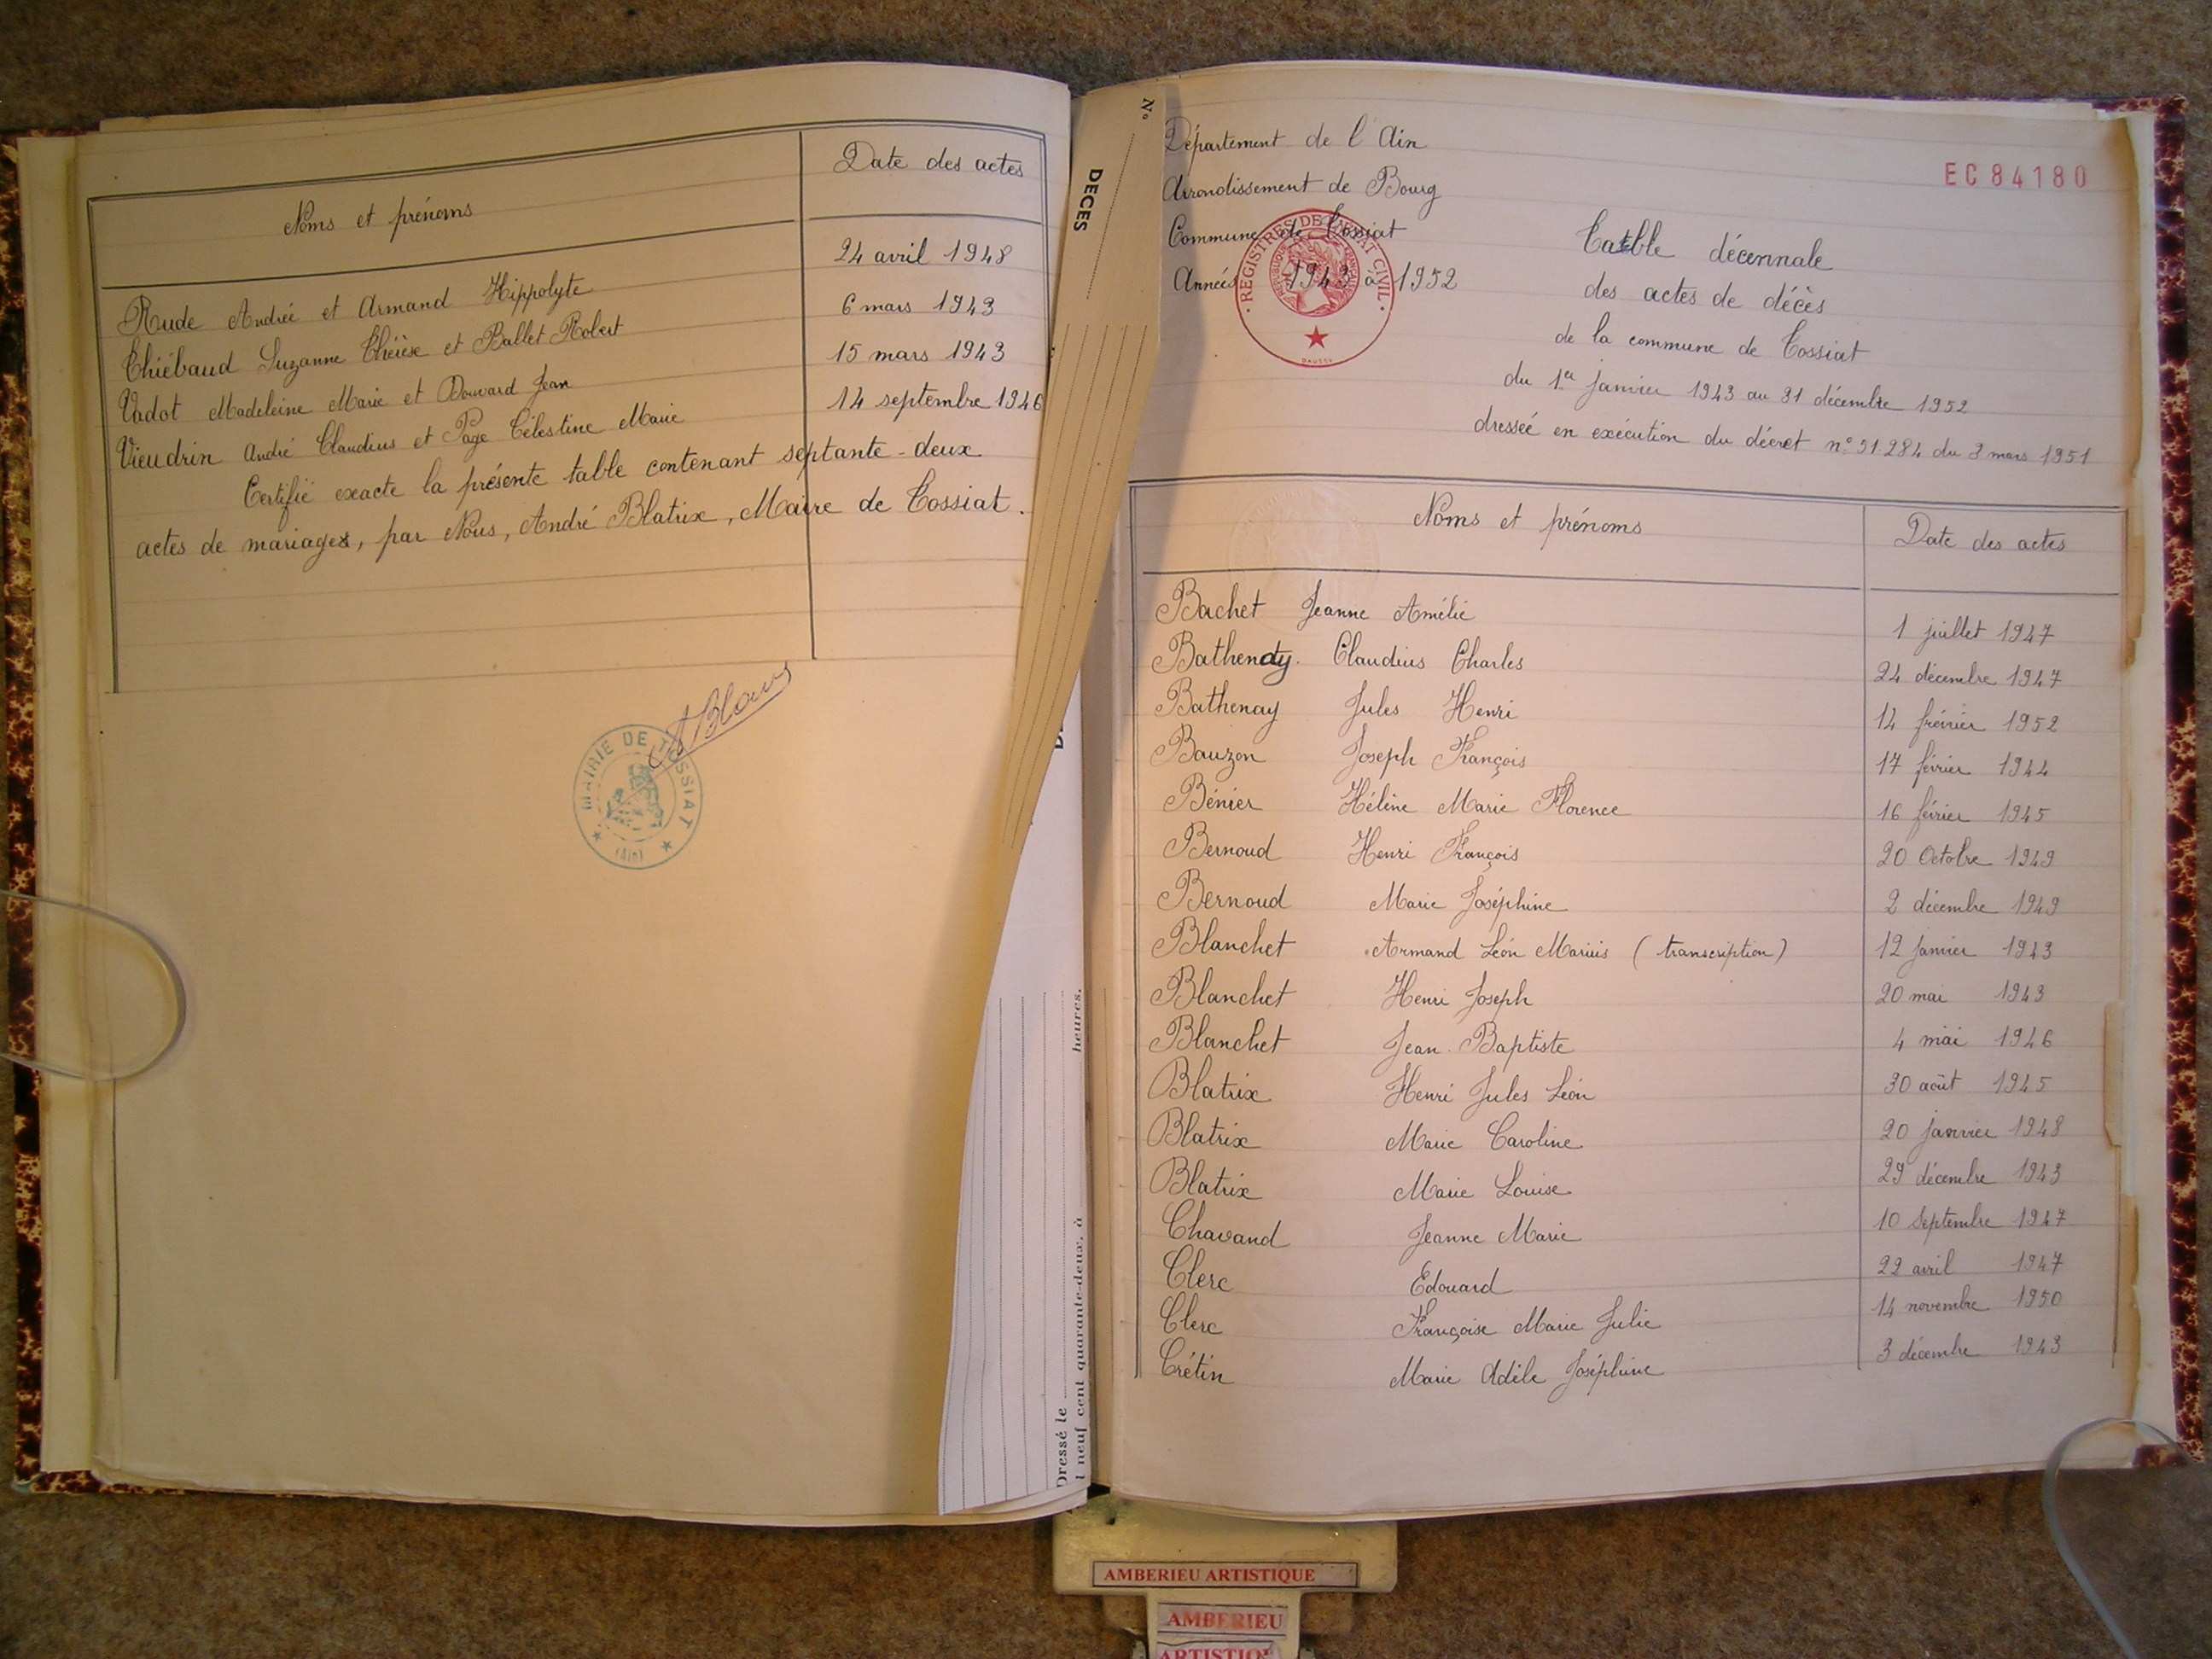 Noms et prénoms | Date des actes
Rude André et Armand Hippolyte | 24 avril 1948
Thiébaud Suzanne Thérèse et Ballet Robert | 6 mars 1943
Vadot Madeleine Marie et Douvard Jean | 15 mars 1943
Vieudrin André Claudius et Page Célestine Marie | 14 septembre 1946
Certifié exacte la présente table contenant septante-deux
actes de mariages, par Nous, André Blatrix, Maire de Tossiat.
MAIRIE DE TOSSIAT
(Ain)
N°
DÉCÈS
heures.
Dressé le
neuf cent quarante-deux, à
Département de l'Ain
Arrondissement de Bourg
Commune de Tossiat
Années 1943 à 1952
REGISTRES DE L'ETAT CIVIL
EC84180
Table décennale
des actes de décès
de la commune de Tossiat
du 1er janvier 1943 au 31 décembre 1952
dressée en exécution du décret n° 51.284 du 3 mars 1951
Noms et prénoms | Date des actes
Bachet Jeanne Amélie | 1 juillet 1947
Bathenay Claudius Charles | 24 décembre 1947
Bathenay Jules Henri | 14 février 1952
Bauzon Joseph François | 17 février 1944
Bénier Hélène Marie Florence | 16 février 1945
Bernoud Henri François | 20 Octobre 1949
Bernoud Marie Joséphine | 2 décembre 1949
Blanchet Armand Léon Marius (transcription) | 12 janvier 1943
Blanchet Henri Joseph | 20 mai 1943
Blanchet Jean-Baptiste | 4 mai 1946
Blatrix Henri Jules Léon | 30 août 1945
Blatrix Marie Caroline | 20 janvier 1948
Blatrix Marie Louise | 29 décembre 1943
Chavand Jeanne Marie | 10 Septembre 1947
Clerc Edouard | 22 avril 1947
Clerc Françoise Marie Julie | 14 novembre 1950
Crétin Marie Adèle Joséphine | 3 décembre 1943
AMBERIEU ARTISTIQUE
AMBERIEU